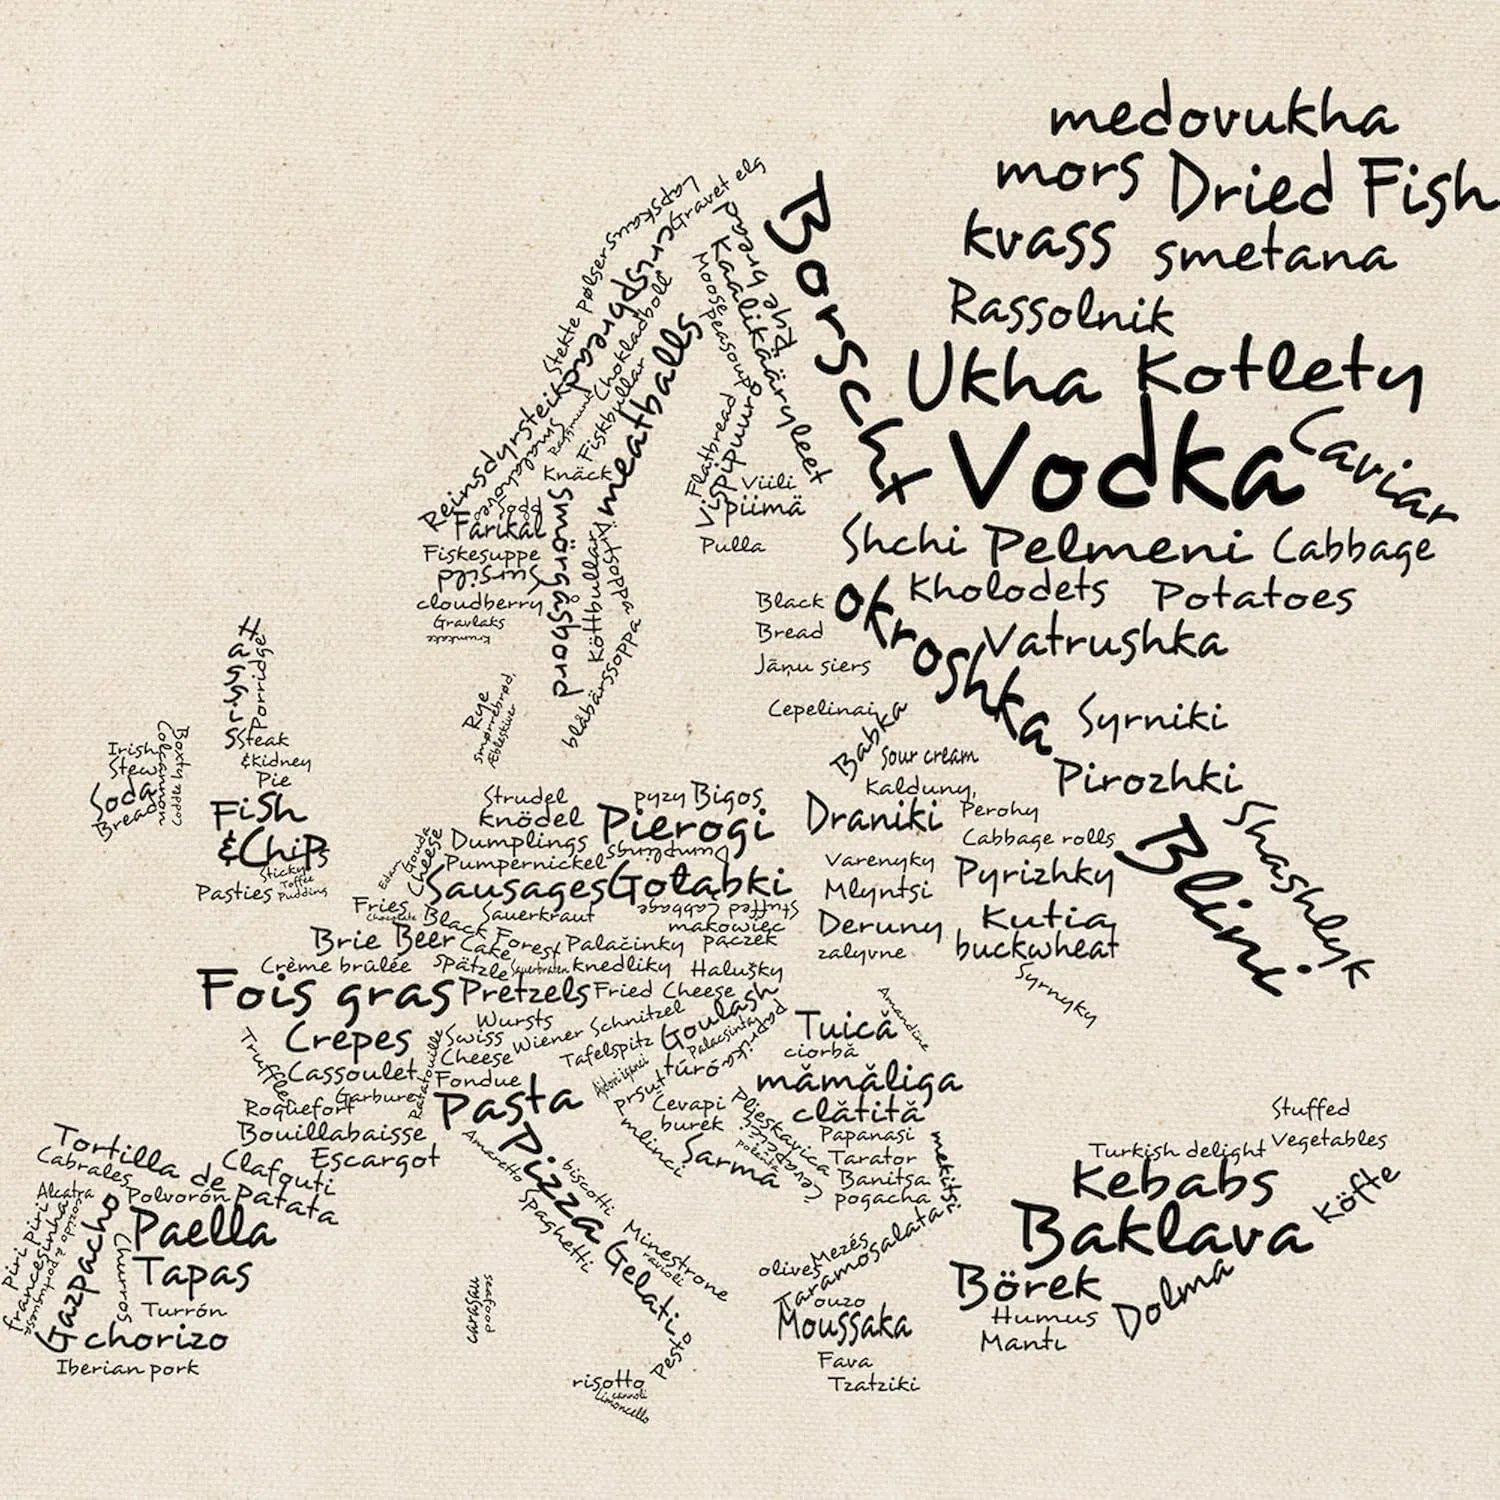 medovukha
mors Dried Fish
kvass smetana
Rassolnik
Ukha Kotlety
Borscht Vodka Caviar
Shchi Pelmeni Cabbage
Kholodets Potatoes
okroshka Vatrushka
Syrniki
Pirozhki
Shashlyk
Blini
Gravet elg
Lapskaus
Stekte pølser
crispbread
Chokladboll
Fiskbullar
meatballs
Raggmunk
Reinsdyrsteik
Knäck
Fårikål
Fiskesuppe
Sursild
cloudberry
Gravlaks
Krumkake
Smörgåsbord
Köttbullar
Ärtsoppa
blåbärssoppa
Rye bread
Kaalikääryleet
Moose
peasoup
Flatbread
Vispipuuro
Viili
piimä
Pulla
Black
Bread
Jāņu siers
Cepelinai
Babka
Sour cream
Kalduny,
Draniki
Perohy
Cabbage rolls
Varenyky
Mlyntsi
Pyrizhky
Deruny
zalyvne
Kutia,
buckwheat
Syrnyky
Rye
smørrebrød,
Æbleskiver
Tayshr
Porridge
Steak
&Kidney
Pie
Fish
&Chips
Sticky
Toffee
Pudding
Pasties
Irish
Stew
Soda
Bread
Colcannon
Boxty
Strudel
knödel
Dumplings
Pumpernickel
Sausages
Sauerkraut
pyzy Bigos
Pierogi
Dumplings
Gołąbki
Stuffed Cabbage
makowiec
pączek
Edam
Gouda
Cheese
Fries
Chocolate
Brie Beer
Black Forest
Cake
Palačinky
Crème brûlée
Spätzle
Sauerbraten
knedliky
Halušky
Fois gras
Pretzels
Fried Cheese
Wursts
Crepes
Swiss
Cheese
Fondue
Wiener Schnitzel
Tafelspitz
Goulash
Palacsinta
paprika
túró
Truffles
Cassoulet
Garbure
Ratatouille
Roquefort
Bouillabaisse
Clafouti
Escargot
Pasta
Amaretto
Pizza
biscotti
Spaghetti
Minestrone
ravioli
Gelati
Pesto
risotto
cannoli
limoncello
carasau
seafood
Ajdovi žganci
pršut
Cevapi
burek
mlinci
Sarma
Pljeskavica
Ćevapčići
polenta
Tuică
ciorbă
Amandine
mămăliga
clătită
Papanasi
Tarator
Banitsa
pogacha
mekitsi
olives
Mezés
Taramosalata
ouzo
Moussaka
Fava
Tzatziki
Tortilla de patata
Cabrales
Polvorón
Alcatra
Piri piri
francesinha
cozido à portuguesa
Gazpacho
Churros
Paella
Tapas
Turrón
chorizo
Iberian pork
Stuffed
Vegetables
Turkish delight
Kebabs
Köfte
Baklava
Börek
Dolma
Humus
Mantı